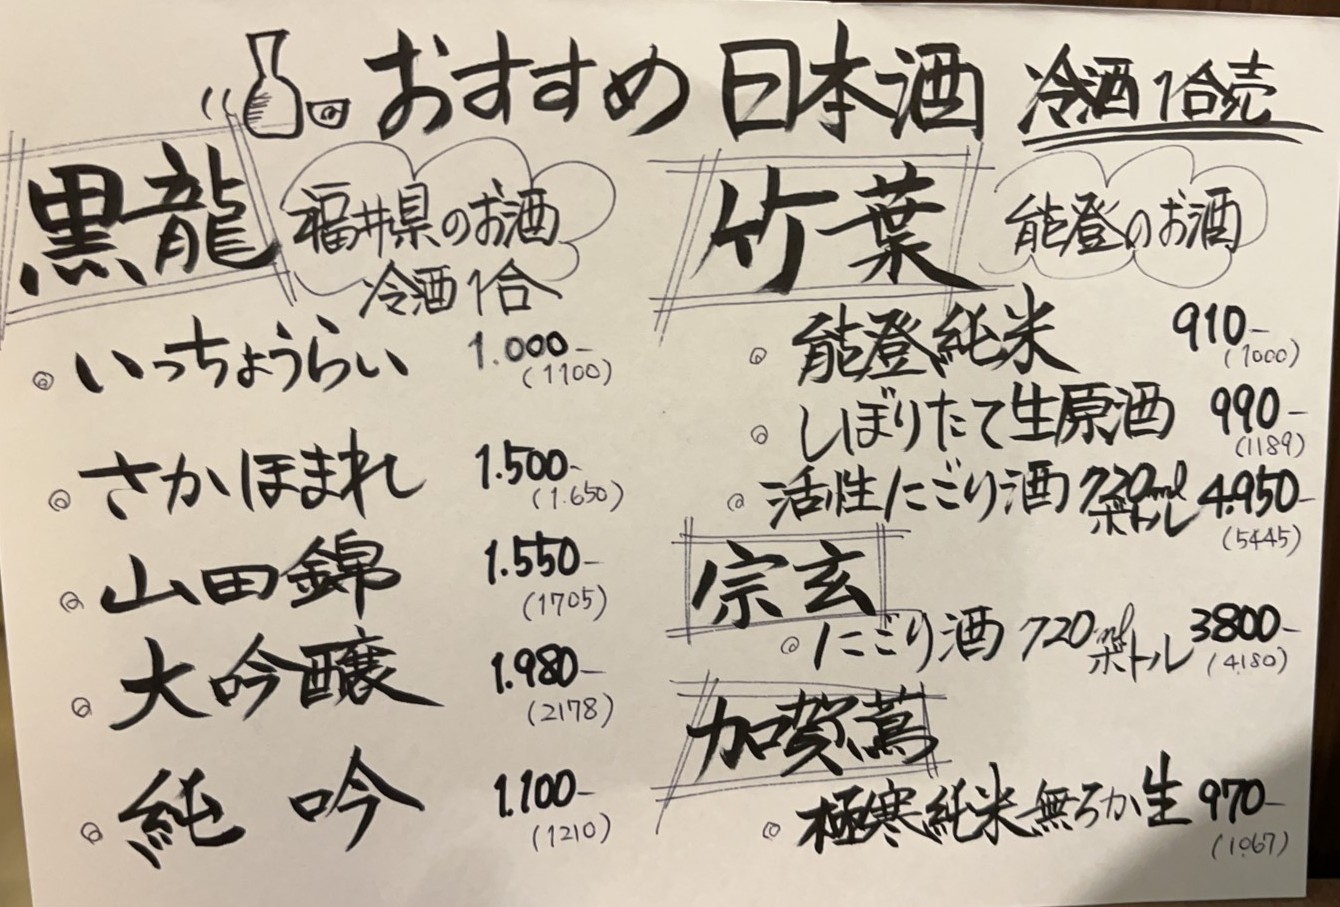 おすすめ 日本酒 冷酒1合売
黒龍 福井県のお酒
冷酒1合
◎ いっちょうらい 1.000-
(1100)
◎ さかほまれ 1.500-
(1.650)
◎ 山田錦 1.550-
(1705)
◎ 大吟醸 1.980-
(2178)
◎ 純吟 1.100-
(1210)
竹葉 能登のお酒
◎ 能登純米 910-
(1000)
◎ しぼりたて生原酒 990-
(1189)
◎ 活性にごり酒 720ml ボトル 4.950-
(5445)
宗玄
◎ にごり酒 720ml ボトル 3800-
(4180)
加賀蔦
◎ 極寒純米無ろか生 970-
(1.067)